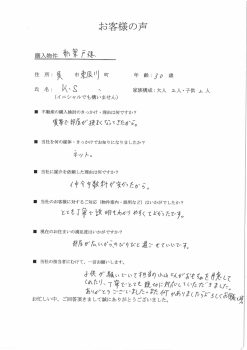 お客様の声
購入物件 新築戸建
住所： 市 町 年齢：30歳
氏名： K・S 家族構成：大人 2人・子供 2人
（イニシャルでも構いません）
■ 不動産の購入検討のきっかけ・理由は何ですか？
賃貸で部屋が狭くなってきたから。
■ 当社を何の媒体・きっかけでお知りになりましたか？
ネット。
■ 当社に媒介を依頼した理由は何ですか？
仲介手数料が安かったから。
■ 当社のお客様に対するご対応（物件案内・説明など）はいかがでしたか？
とても丁寧で説明もわかりやすくてよかったです。
■ 現在のお住まいの満足度はいかがですか？
部屋が広いがゆったりなにに過ごせていいです。
■ 当社の担当者にむけて、一言お願いします。
子供が騒いでいて
くれたり、丁寧でとても親切に対応していただきました。
ありがとうございました。また何かありましたらよろしくお願いします。
お忙しい中、ご回答頂きまして誠にありがとうございました。